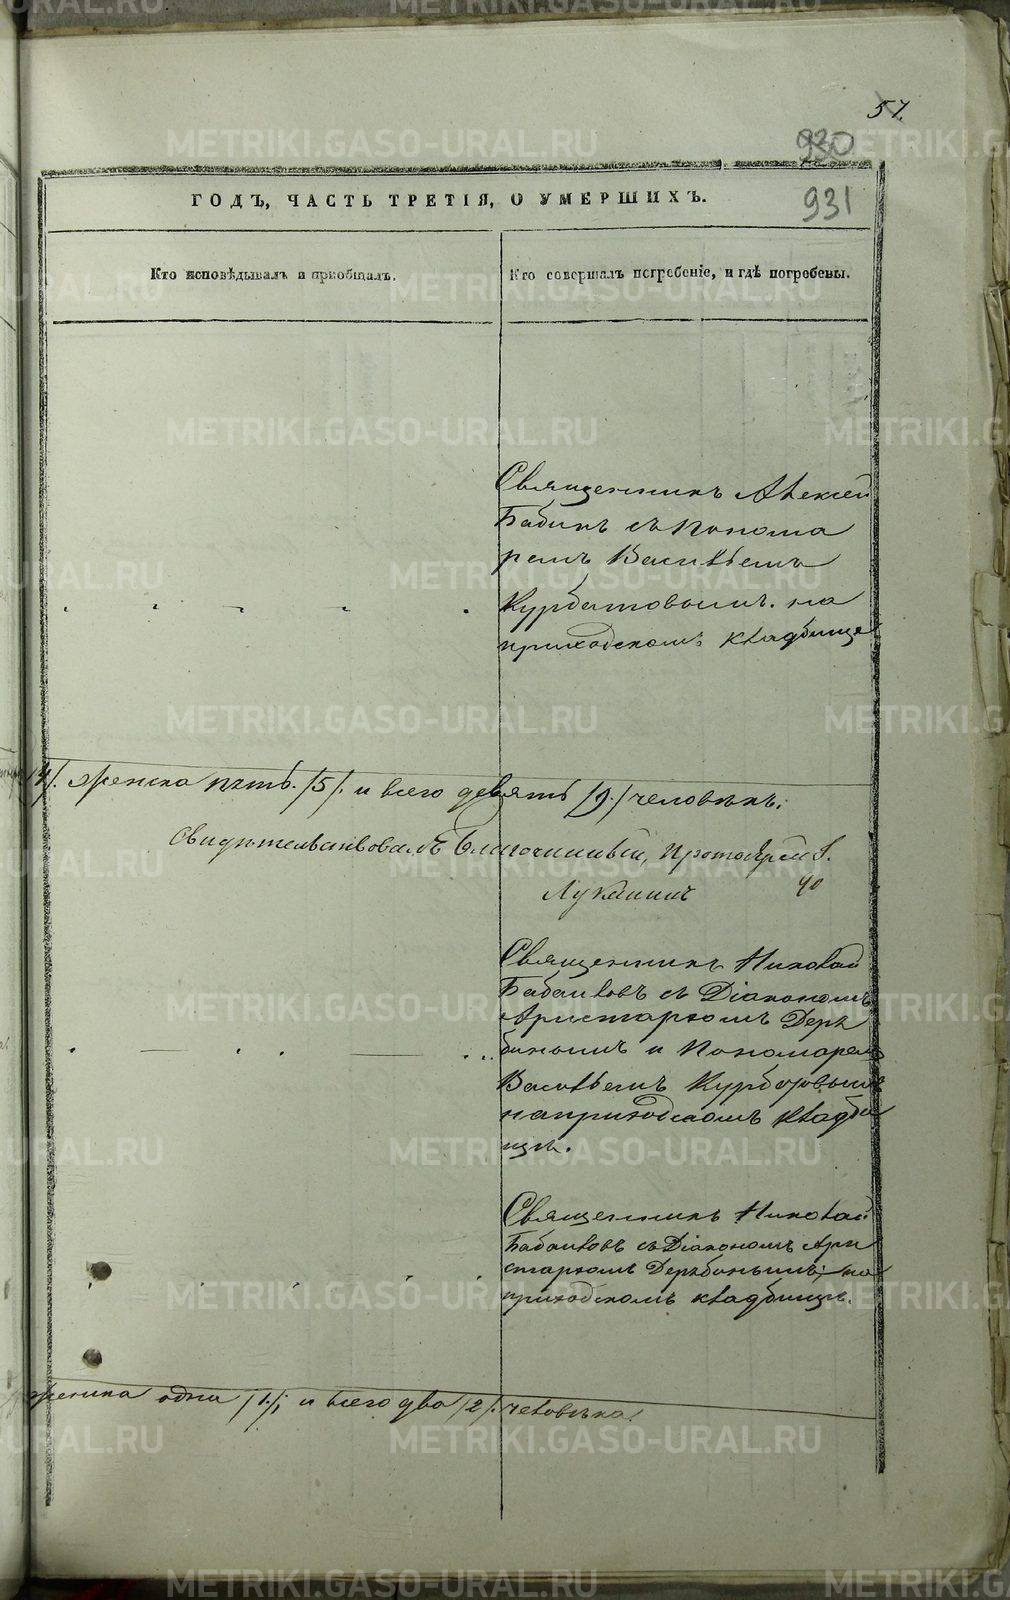 57.
930
931
ГОДЪ, ЧАСТЬ ТРЕТІЯ, О УМЕРШИХЪ.
Кто исповѣдывалъ и пріобщалъ.
Кто совершалъ погребеніе, и гдѣ погребены.
Священникъ Алексѣй
Бабинъ съ Понома
ремъ Васильемъ
Курбатовымъ. на
приходскомъ кладбище
/4/. Женска пять. /5/. и всего девять /9./ человѣкъ.
Свидѣтельствовалъ Благочинный, Протоіерей І.
Луканинъ
40
Священникъ Николай
Бабаиловъ съ Діакономъ
Аристархомъ Деря
бинымъ и Пономаремъ
Васильемъ Курбатовымъ
на приходскомъ кладби
щѣ.
Священникъ Николай
Бабаиловъ съ Діакономъ Ари
стархомъ Дерябинымъ; на
приходскомъ кладбищѣ.
женска одна /1./; и всего два /2/. человѣка.
METRIKI.GASO-URAL.RU